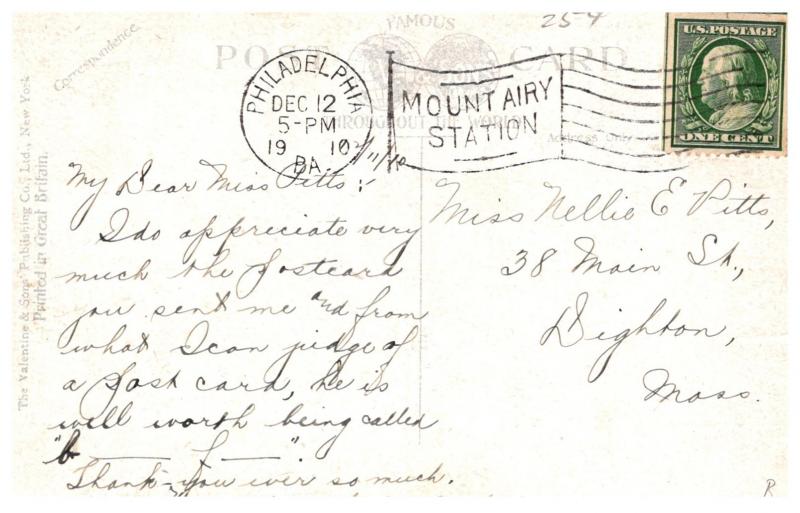 25-4
FAMOUS
POST CARD
THROUGHOUT THE WORLD
Correspondence.
Address Only
U.S. POSTAGE
ONE CENT
PHILADELPHIA
DEC 12
5-PM
19 10
PA.
MOUNT AIRY
STATION
The Valentine & Sons' Publishing Co., Ltd., New York
Printed in Great Britain.
12/11/10
My Dear Miss Pitts:-
I do appreciate very
much the postcard
you sent me and from
what I can judge of
a post card, he is
well worth being called
"b——— f———".
Thank-you ever so much.
Miss Nellie E Pitts,
38 Main St.,
Dighton,
Mass.
R